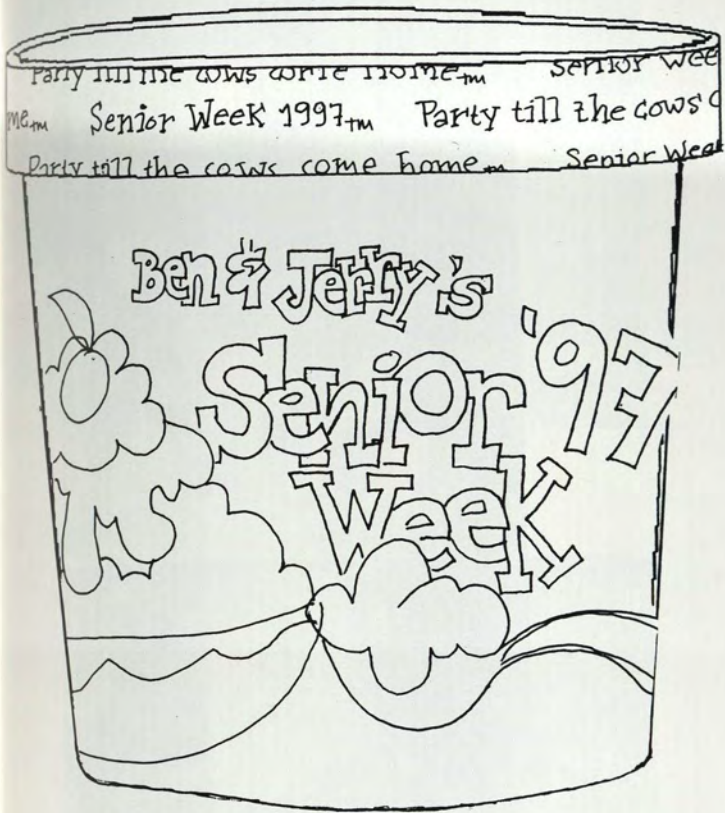 Party till the cows come home™ Senior Wee
me™ Senior Week 1997™ Party till the cows c
Party till the cows come home™ Senior Week
Ben & Jerry's
Senior '97
Week